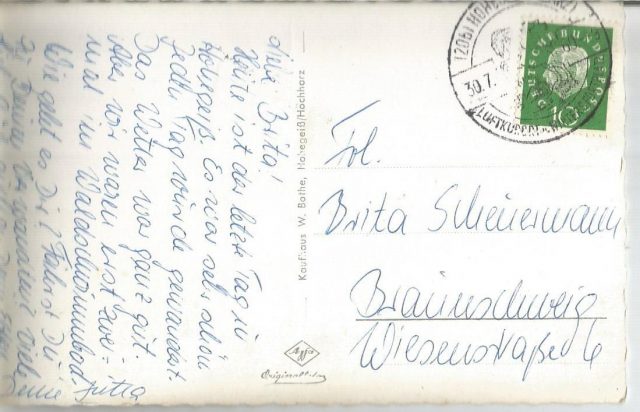 Liebe Brita!
Heute ist der letzte Tag in
Hohegeiß. Es war sehr schön
Jeden Tag wurde gewandert.
Das Wetter war ganz gut.
Aber wir waren erst zwei-
mal im Waldschwimmbad.
Wie geht es Dir? Fährst Du
Jutta
Kaufhaus W. Bothe, Hohegeiß/Hochharz
Agfa
(20b) HOHE
30.7.
LUFTKURORT
DEUTSCHE BUNDESPOST
10
Frl.
Brita Scheuermann
Braunschweig
Wiesenstraße 6